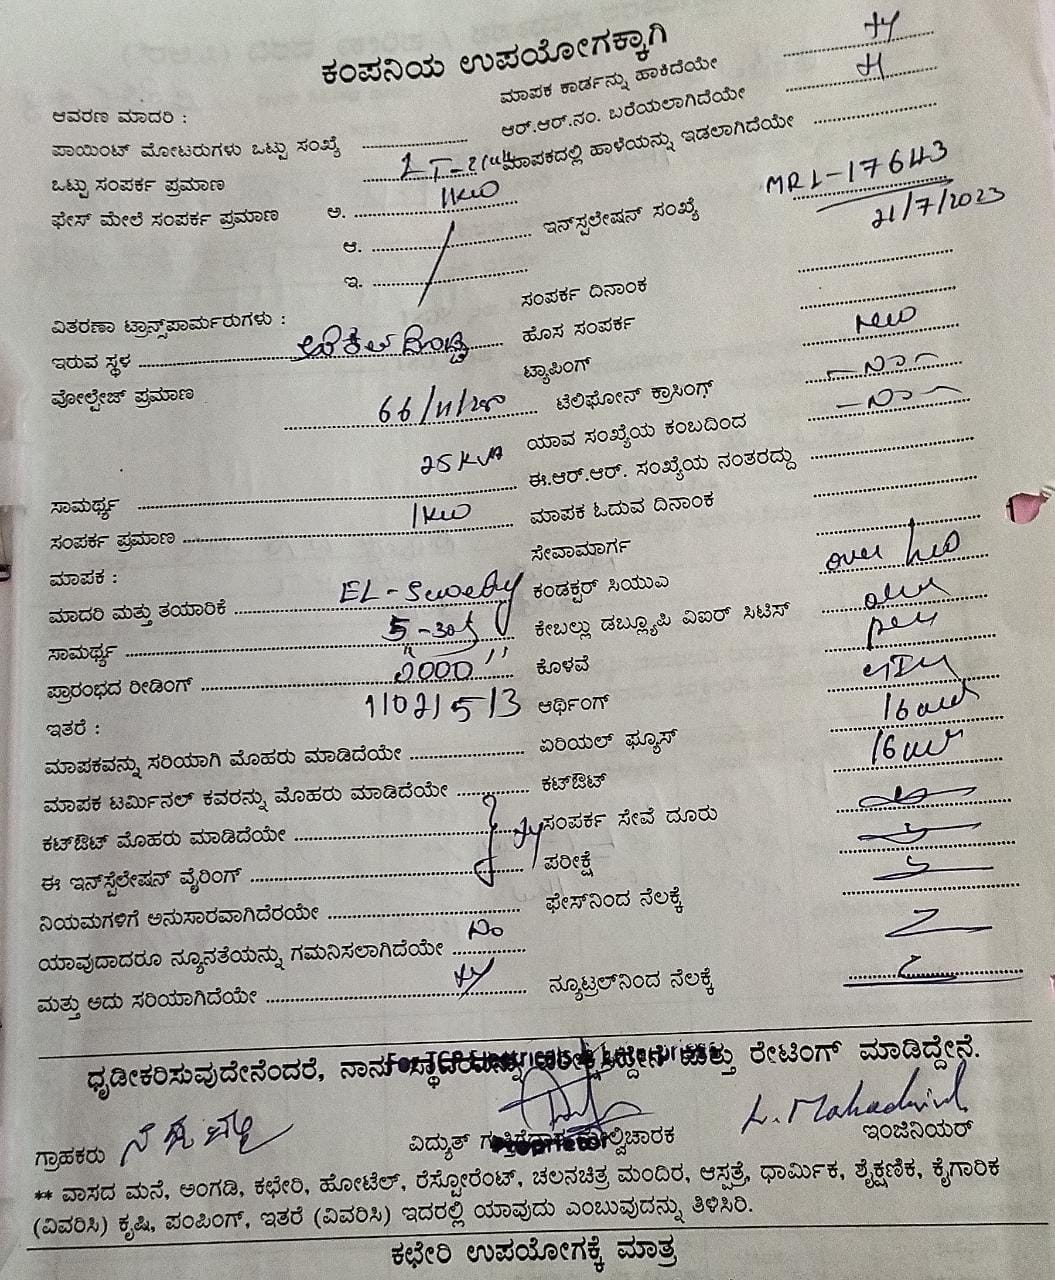 ಕಂಪನಿಯ ಉಪಯೋಗಕ್ಕಾಗಿ
ಆವರಣ ಮಾದರಿ :
ಮಾಪಕ ಕಾರ್ಡನ್ನು ಹಾಕಿದೆಯೇ
ಪಾಯಿಂಟ್ ಮೋಟರುಗಳು ಒಟ್ಟು ಸಂಖ್ಯೆ
ಆರ್.ಆರ್.ನಂ. ಬರೆಯಲಾಗಿದೆಯೇ
ಒಟ್ಟು ಸಂಪರ್ಕ ಪ್ರಮಾಣ
ಮಾಪಕದಲ್ಲಿ ಹಾಳೆಯನ್ನು ಇಡಲಾಗಿದೆಯೇ
ಫೇಸ್ ಮೇಲೆ ಸಂಪರ್ಕ ಪ್ರಮಾಣ ಅ. 1KW
MRL-17643
ಆ. ಇನ್‌ಸ್ಪಲೇಷನ್ ಸಂಖ್ಯೆ 21/7/2023
ಇ.
ಸಂಪರ್ಕ ದಿನಾಂಕ
ವಿತರಣಾ ಟ್ರಾನ್ಸ್‌ಪಾರ್ಮರುಗಳು :
ಇರುವ ಸ್ಥಳ
ಹೊಸ ಸಂಪರ್ಕ New
ವೋಲ್ಟೇಜ್ ಪ್ರಮಾಣ 66/11/
ಟ್ಯಾಪಿಂಗ್
ಟೆಲಿಫೋನ್ ಕ್ರಾಸಿಂಗ್
25 KVA ಯಾವ ಸಂಖ್ಯೆಯ ಕಂಬದಿಂದ
ಸಾಮರ್ಥ್ಯ
ಈ.ಆರ್.ಆರ್. ಸಂಖ್ಯೆಯ ನಂತರದ್ದು
ಸಂಪರ್ಕ ಪ್ರಮಾಣ 1KW
ಮಾಪಕ ಓದುವ ದಿನಾಂಕ
ಮಾಪಕ :
ಸೇವಾಮಾರ್ಗ over
ಮಾದರಿ ಮತ್ತು ತಯಾರಿಕೆ EL-Sewedy
ಕಂಡಕ್ಟರ್ ಸಿಯುಎ
ಸಾಮರ್ಥ್ಯ 5-30
ಕೇಬಲ್ಲು ಡಬ್ಲ್ಯೂಪಿ ವಿಐರ್ ಸಿಟಿಸ್
ಪ್ರಾರಂಭದ ರೀಡಿಂಗ್ "0000"
ಕೊಳವೆ
11021513 ಆರ್ಥಿಂಗ್
ಇತರೆ :
ಮಾಪಕವನ್ನು ಸರಿಯಾಗಿ ಮೊಹರು ಮಾಡಿದೆಯೇ
ಏರಿಯಲ್ ಫ್ಯೂಸ್
ಮಾಪಕ ಟರ್ಮಿನಲ್ ಕವರನ್ನು ಮೊಹರು ಮಾಡಿದೆಯೇ
ಕಟ್‌ಔಟ್
ಕಟ್‌ಔಟ್ ಮೊಹರು ಮಾಡಿದೆಯೇ
ಸಂಪರ್ಕ ಸೇವೆ ದೂರು
ಈ ಇನ್‌ಸ್ಟೆಲೇಷನ್ ವೈರಿಂಗ್
ಪರೀಕ್ಷೆ
ನಿಯಮಗಳಿಗೆ ಅನುಸಾರವಾಗಿದೆರಯೇ
ಫೇಸ್‌ನಿಂದ ನೆಲಕ್ಕೆ
ಯಾವುದಾದರೂ ನ್ಯೂನತೆಯನ್ನು ಗಮನಿಸಲಾಗಿದೆಯೇ No
ಮತ್ತು ಅದು ಸರಿಯಾಗಿದೆಯೇ
ನ್ಯೂಟ್ರಲ್‌ನಿಂದ ನೆಲಕ್ಕೆ
ಧೃಡೀಕರಿಸುವುದೇನೆಂದರೆ, ನಾನು ಮತ್ತು ರೇಟಿಂಗ್ ಮಾಡಿದ್ದೇನೆ.
ಗ್ರಾಹಕರು
ವಿದ್ಯುತ್
ಇಂಜಿನಿಯರ್
** ವಾಸದ ಮನೆ, ಅಂಗಡಿ, ಕಛೇರಿ, ಹೋಟೆಲ್, ರೆಸ್ಟೋರೆಂಟ್, ಚಲನಚಿತ್ರ ಮಂದಿರ, ಆಸ್ಪತ್ರೆ, ಧಾರ್ಮಿಕ, ಶೈಕ್ಷಣಿಕ, ಕೈಗಾರಿಕ
(ವಿವರಿಸಿ) ಕೃಷಿ, ಪಂಪಿಂಗ್, ಇತರೆ (ವಿವರಿಸಿ) ಇದರಲ್ಲಿ ಯಾವುದು ಎಂಬುವುದನ್ನು ತಿಳಿಸಿರಿ.
ಕಛೇರಿ ಉಪಯೋಗಕ್ಕೆ ಮಾತ್ರ